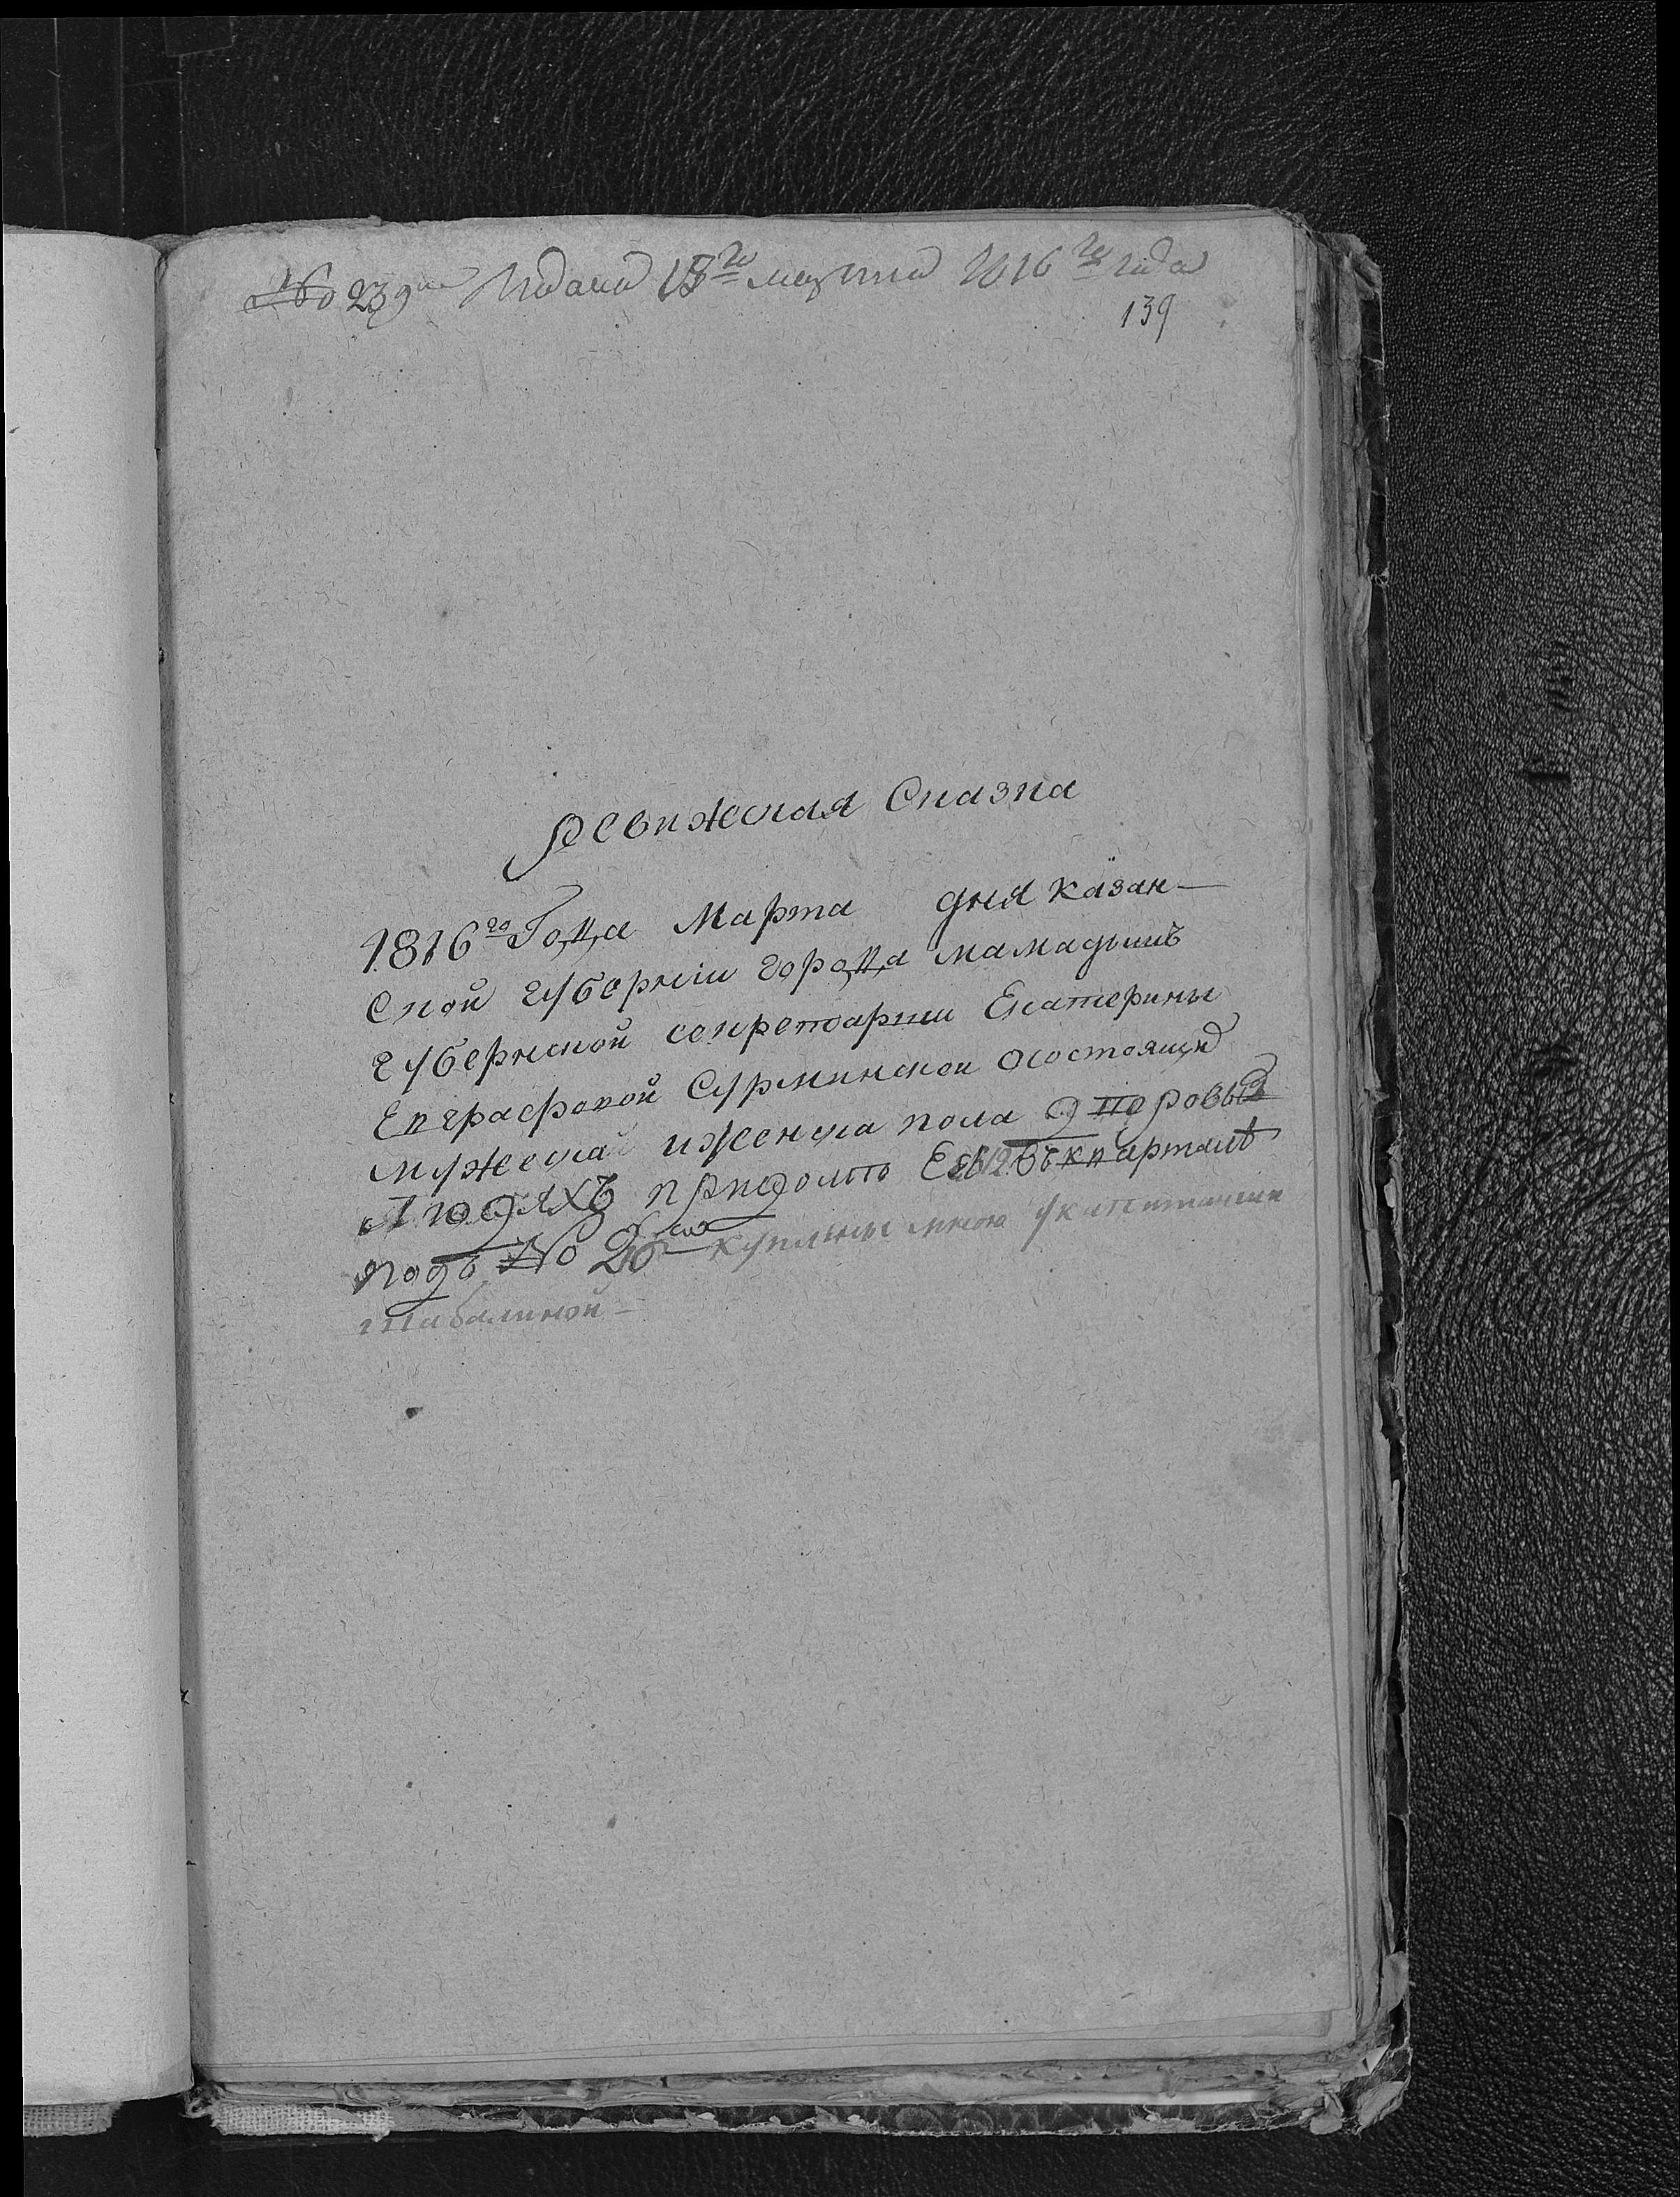 № 239й Подана 13го марта 1816го года
139
Ревижская Сказка
1816го Года Марта дня казан-
Ской губернiи города мамадышъ
губернской секретарши Екатерины
Евграфовой Сурминской о состоящих
мужеска и женска пола дворовых
Людяхъ при доме Ея въ квартале
подъ №
купленые мною у капитанши